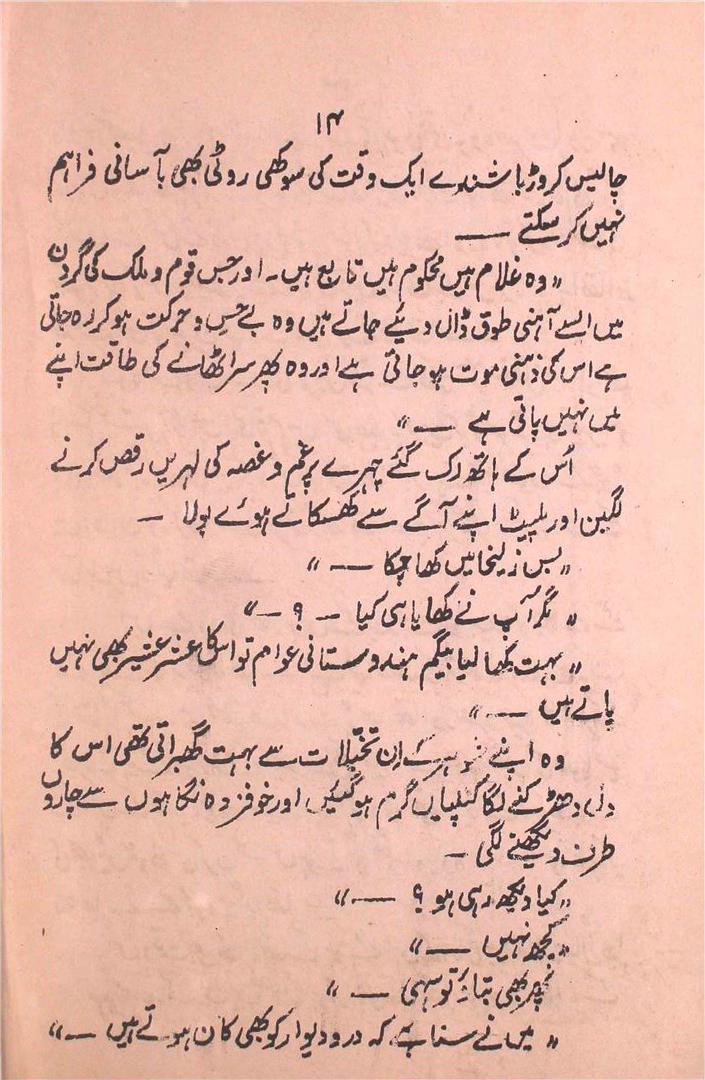 ۱۴
چالیس کروڑ باشندے ایک وقت کی سوکھی روٹی بھی بآسانی فراہم
نہیں کر سکتے ——
”وہ غلام ہیں محکوم ہیں تابع ہیں۔ اور جس قوم و ملک کی گردن
میں ایسے آہنی طوق ڈال دیئے جاتے ہیں وہ بے حس و حرکت ہو کر رہ جاتی
ہے اس کی ذہنی موت ہو جاتی ہے اور وہ پھر سر اٹھانے کی طاقت اپنے
میں نہیں پاتی ہے ——“
اُس کے ہاتھ رک گئے چہرے پر غم و غصہ کی لہریں رقص کرنے
لگیں اور پلیٹ اپنے آگے سے کھسکاتے ہوئے بولا —
”بس زلیخا میں کھا چکا ——“
”مگر آپ نے کھایا ہی کیا — ؟ —“
”بہت کھا لیا بیگم ہندوستانی عوام تو اس کا عشر عشیر بھی نہیں
پاتے ہیں ——“
وہ اپنے شوہر کے اِن تخیّلات سے بہت گھبراتی تھی اس کا
دل دھڑکنے لگا کنپٹیاں گرم ہو گئیں اور خوفزدہ نگاہوں سے چاروں
طرف دیکھنے لگی —
”کیا دیکھ رہی ہو ؟ ——“
”کچھ نہیں ——“
”پھر بھی بتاؤ تو سہی ——“
”میں نے سنا ہے کہ در و دیوار کو بھی کان ہوتے ہیں —“